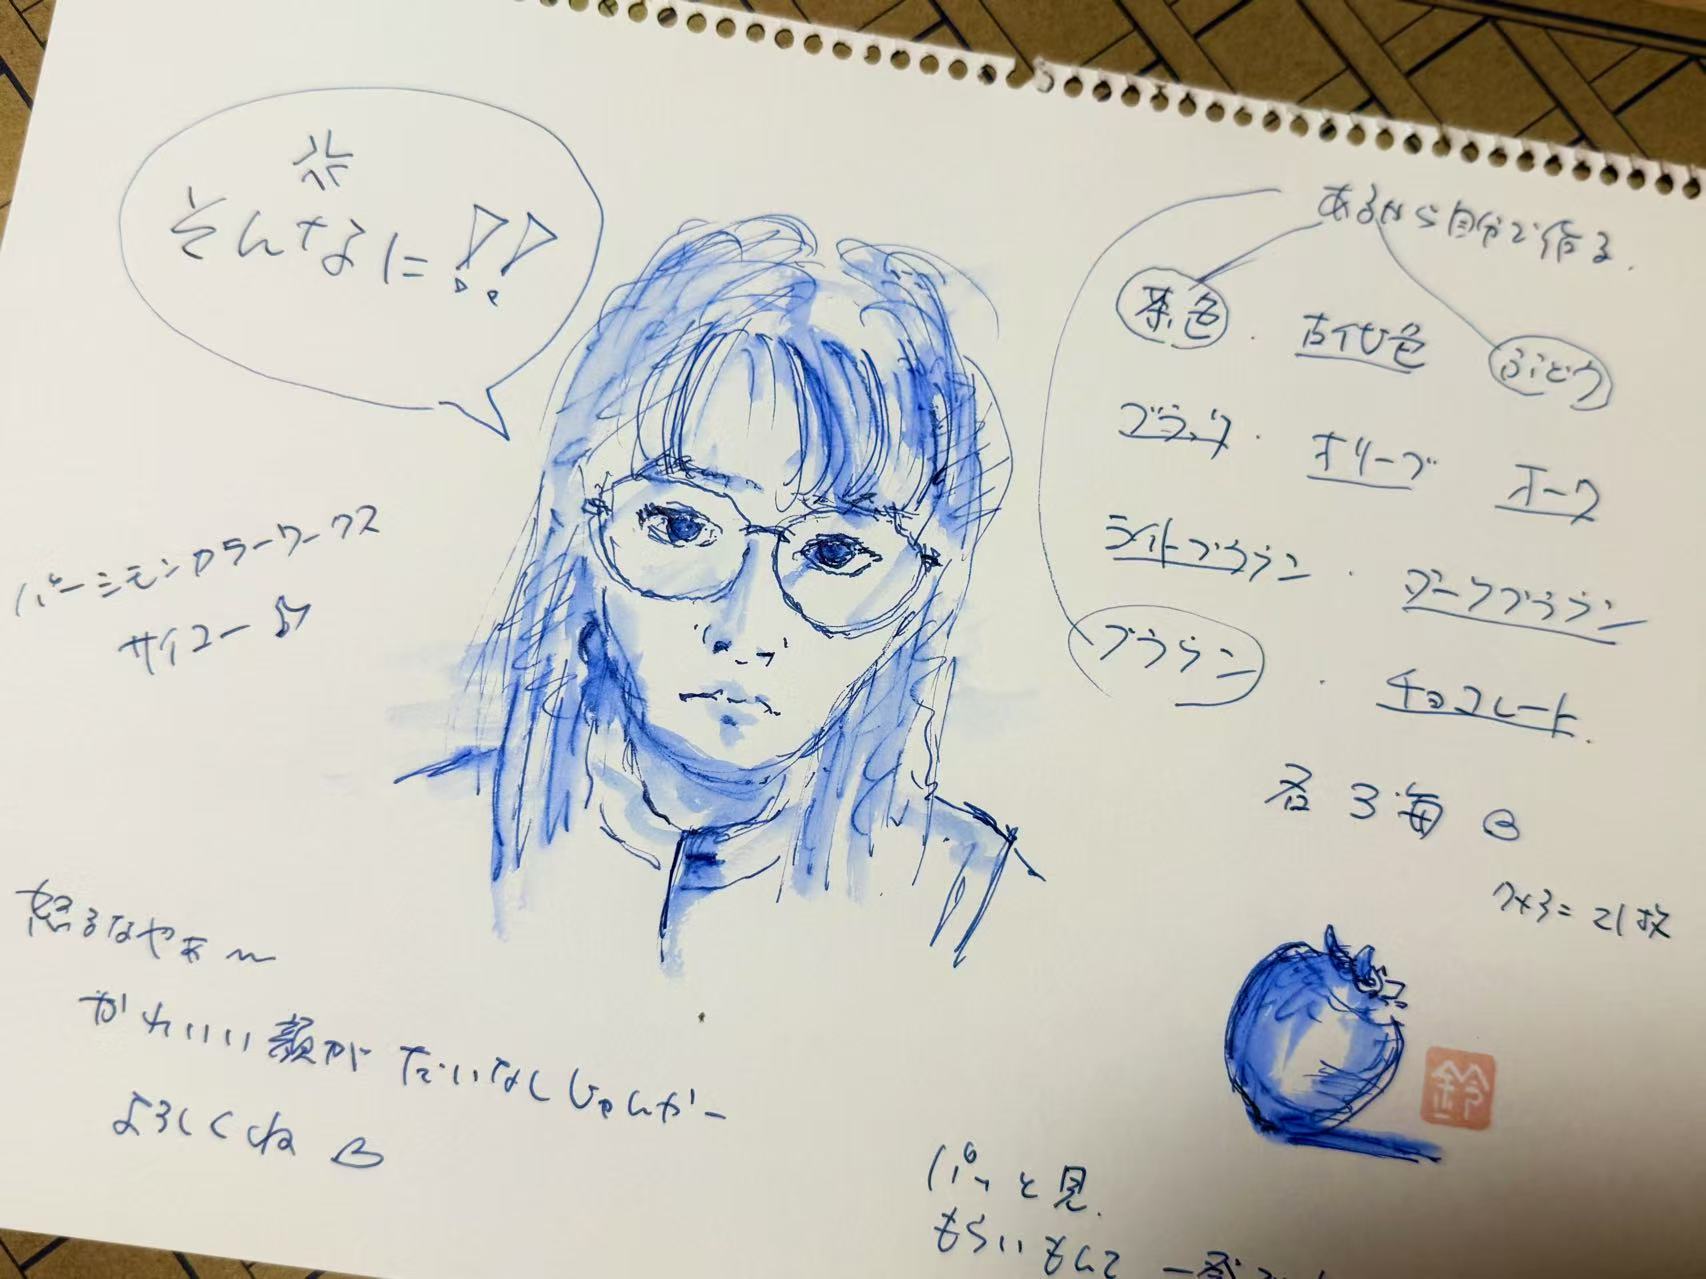 そんなに!!
パーシモンカラーワークス
サイコー♪
怒るなやぁ〜
かわいい顔がだいなしじゃんかー
よろしくね
あるから自分で作る.
茶色・古代色 ぶどう
ブラック・オリーブ オーク
ライトブラウン・ダークブラウン
ブラウン・チョコレート.
各3毎
7×3=21枚
鈴
パッと見.
もらいもんで一発